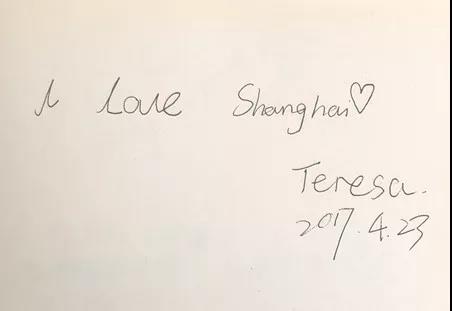 I Love Shanghai♡
Teresa.
2017.4.23